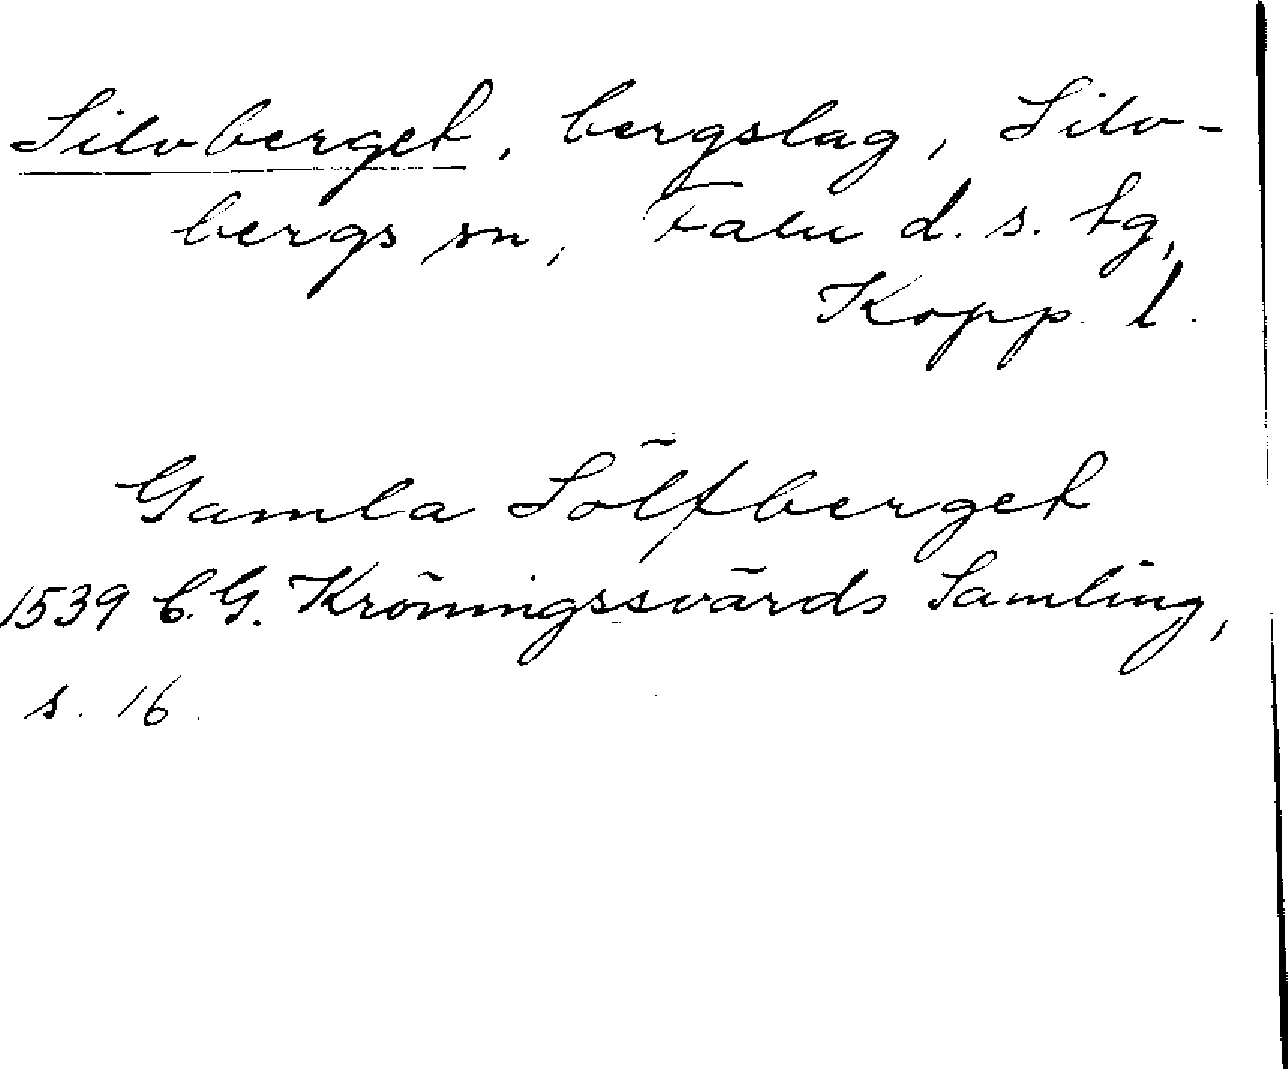 Silvberget, bergslag, Silv-
bergs sn, Falu d. s. tg,
Kopp. l.
Gamla Sölfberget
1539 C. G. Kröningssvärds Samling,
s. 16.